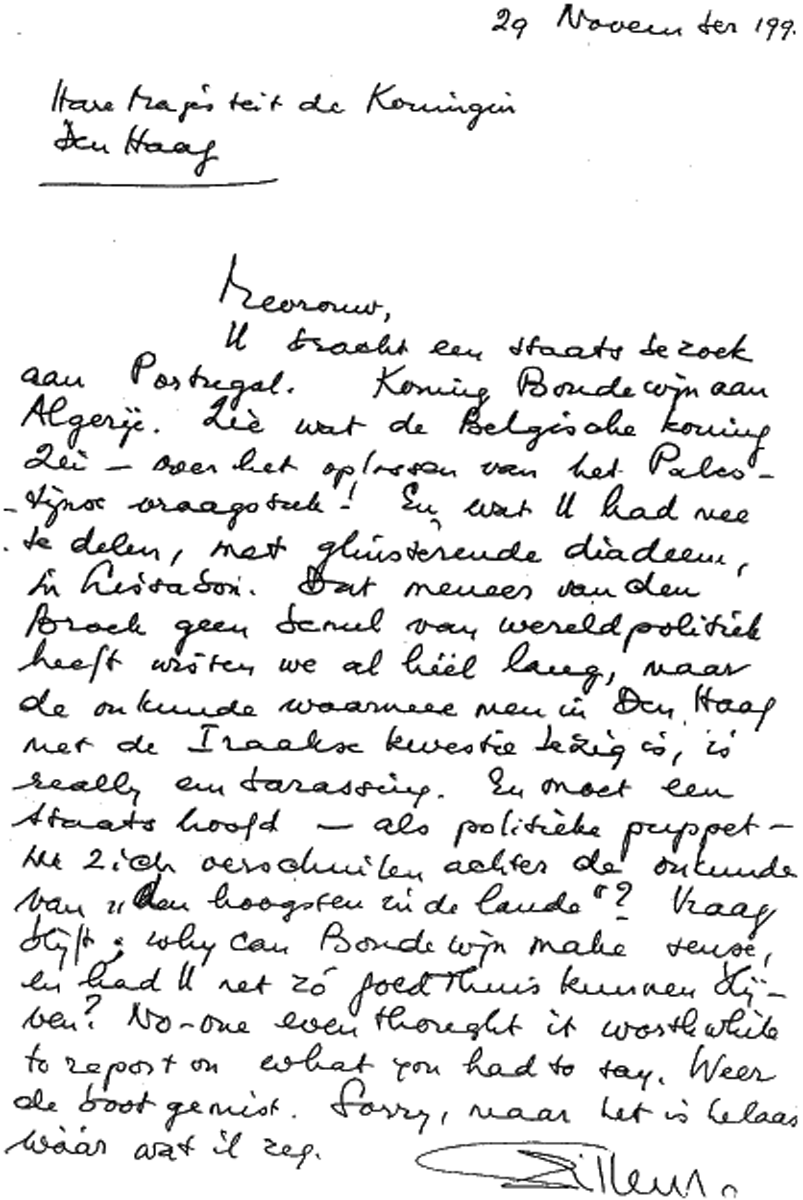 29 November 199.
Hare Majesteit de Koningin
Den Haag
Mevrouw,
U bracht een staatsbezoek
aan Portugal. Koning Boudewijn aan
Algerije. Zie wat de Belgische koning
zei – over het oplossen van het Pales-
tijnse vraagstuk! En wat U had mee
te delen, met glinsterende diadeem,
in Lissabon. Dat meneer van den
Broek geen benul van wereldpolitiek
heeft wisten we al héél lang, maar
de onkunde waarmee men in Den Haag
met de Iraakse kwestie bezig is, is
really embarassing. En moet een
staatshoofd – als politieke puppet –
zich verschuilen achter de onkunde
van "den hoogsten in de lande"? Vraag
blijft: why can Boudewijn make sense,
en had U net zó goed thuis kunnen blij-
ven? No-one even thought it worthwhile
to report on what you had to say. Weer
de boot gemist. Sorry, maar het is helaas
wáár wat ik zeg.
Willem.